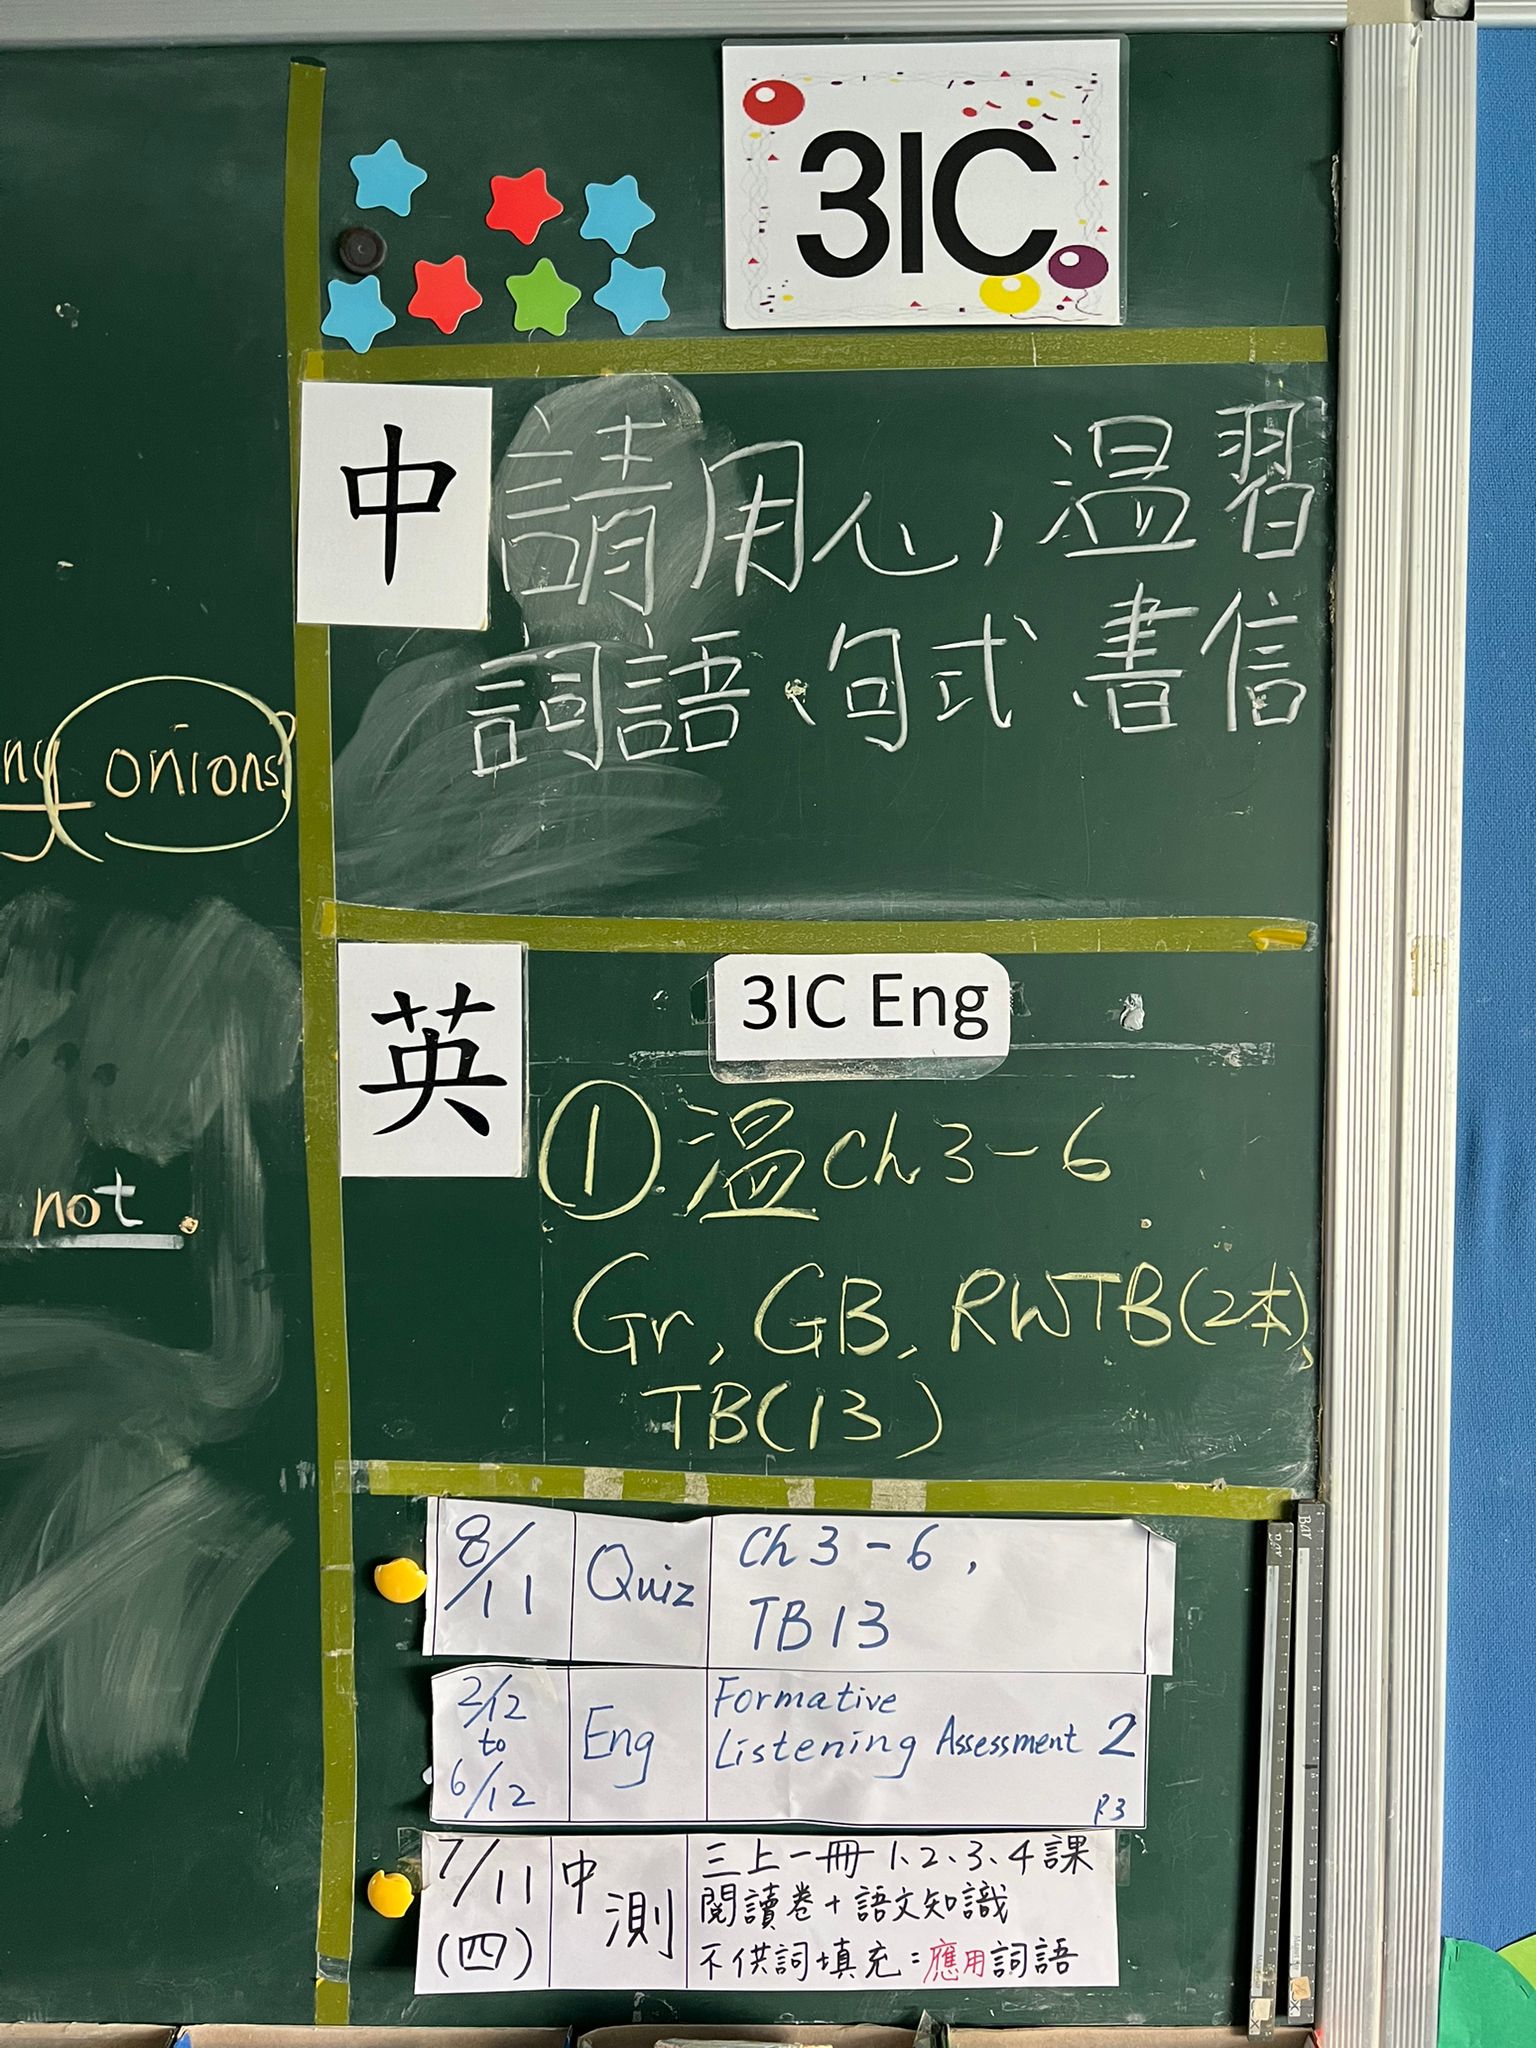 3IC
中
請用心,溫習
詞語、句式、書信
onions?
英
3IC Eng
① 溫 Ch 3-6
Gr, GB, RWTB(2本),
TB(13)
not.
8/11 Quiz Ch 3-6,
TB 13
2/12 to 6/12 Eng Formative
Listening Assessment 2
P.3
7/11 (四) 中測 三上一冊 1、2、3、4課
閱讀卷+語文知識
不供詞填充:應用詞語